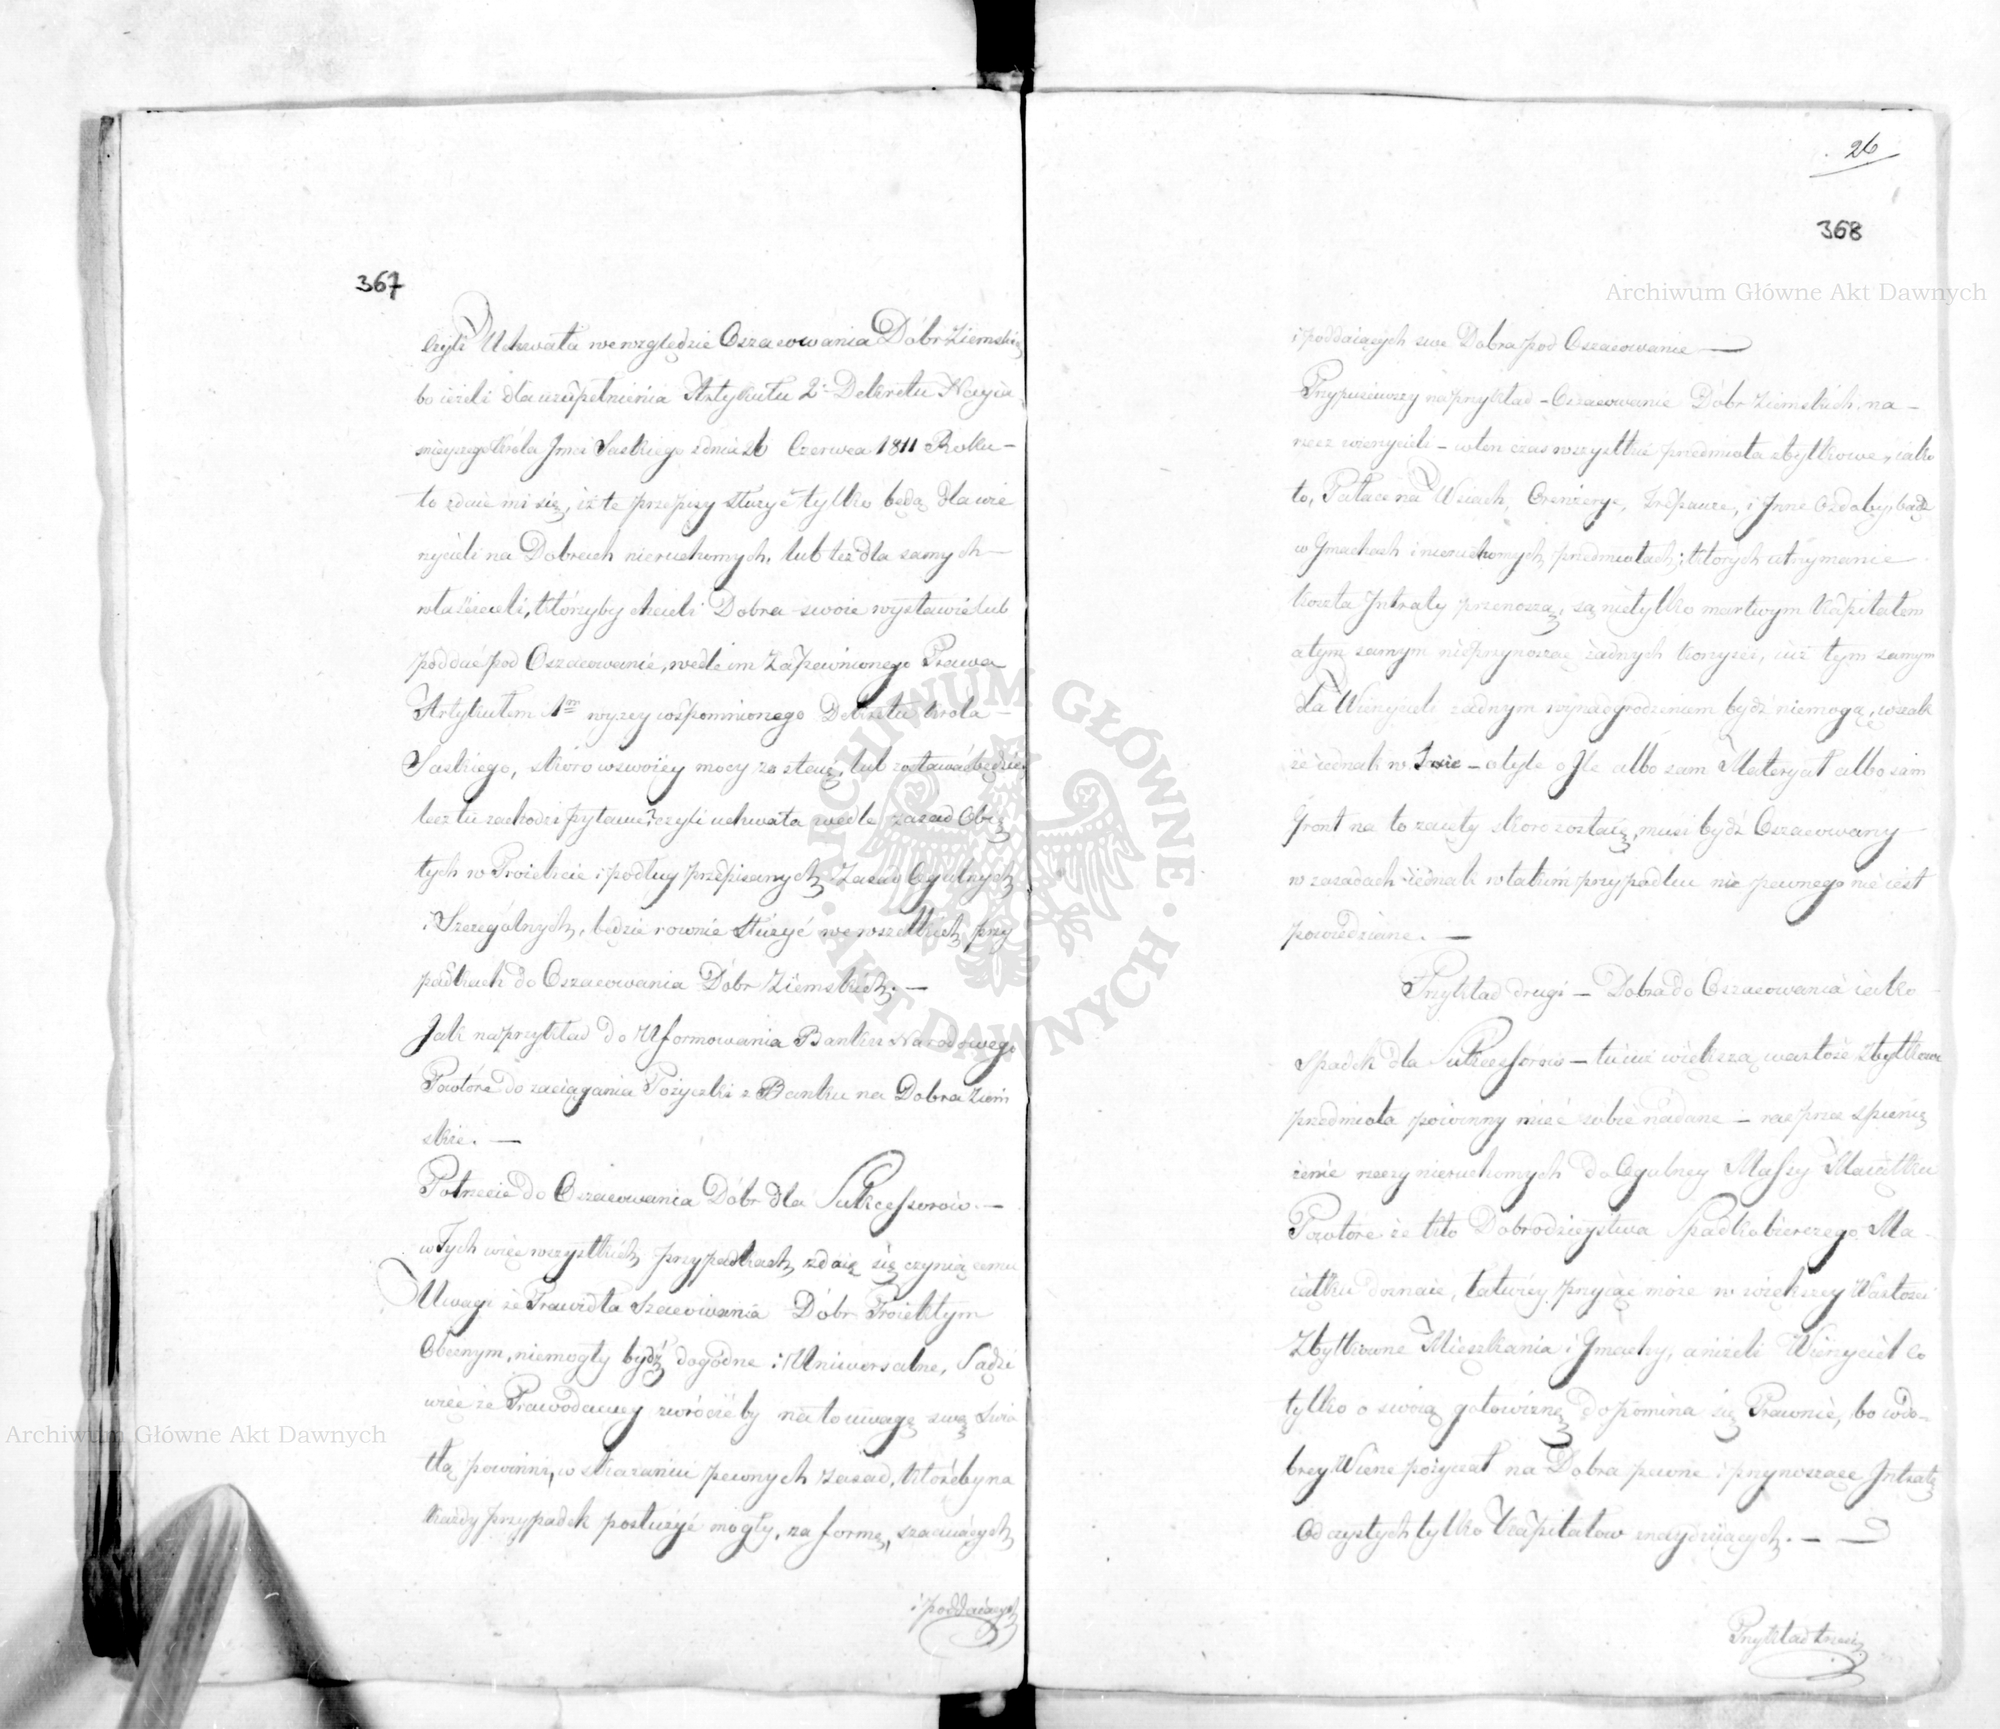 367
czyli Uchwała we względzie Oszacowania Dóbr Ziemskich
bo ieżeli dla uzupełnienia Artykułu 2° Dekretu Nayia
śnieyszego Króla Jmci Saskiego z dnia 26 Czerwca 1811 Roku —
to zdaie mi się, iż te przepisy służyć tylko będą dla wie
rzycieli na Dobrach nieruchomych, lub też dla samych —
właścicieli, którzyby chcieli Dobra swoie wystawić lub
poddać pod Oszacowanie, wedle im Zapewnionego Prawa
Artykułem 1m wyzey wspomnionego Dekretu Króla —
Saskiego, skoro w swoiey mocy zostaią, lub zostawać będzie
lecz tu zachodzi pytanie? czyli uchwała wedle zasad Obię
tych w Proiekcie i podług przepisanych Zasad Ogulnych
i Szczególnych, będzie rownie służyć we wszelkich przy
padkach do Oszacowania Dóbr Ziemskich. —
Jak na przykład do Uformowania Banku Narodowego
Powtóre do zaciągania Pożyczki z Banku na Dobra Ziem
skie. —
Potrzecie do Oszacowania Dóbr dla Sukcessorow. —
w Tych więc wszystkich przypadkach, zdaią się czyniącemu
Uwagi że Prawidła Szacowania Dóbr Proiektym
Obecnym, niemogły bydź dogodne i Uniwersalne, Sądzi
więc że Prawodawcy zwrócić by na to uwagę swą Świa
tłą powinni, w skazaniu pewnych zasad, któreby na
każdy przypadek posłużyć mogły, za formę, szacuiących
i poddaiących
26
368
i poddaiących swe Dobra pod Oszacowanie —
Przypuściwszy na przykład — Oszacowanie Dóbr Ziemskich, na —
rzecz wierzycieli — w ten czas wszystkie przedmiota zbytkowe, iako
to, Pałace na Wsiach, Oranżerye, Trepauze, i Jnne Ozdoby, bądź
w Gmachach i nieruchomych przedmiotach; których utrzymanie
koszta Jntraty przenoszą, są nietylko martwym Kapitałem
a tym samym nieprzynosząc żadnych korzyści, iuż tym samym
dla Wierzycieli żadnym wynadgrodzeniem bydź niemogą, wszak
że iednak w — o tyle o Jle albo sam Materyał albo sam
Gront na to zaięty skoro zostaią, musi bydź Oszacowany
w zasadach iednak w takim przypadku nic pewnego nie iest
powiedziane. —
Przykład drugi — Dobra do Oszacowania iako —
Spadek dla Sukcessorow — tu iuż większą wartość Zbytkowe
przedmiota powinny mieć sobie nadane — raz przez spienię
żenie rzeczy nieruchomych do Ogulney Massy Maiątku
Powtóre że kto Dobrodzieystwa Spadkobierczego Ma —
iątku doznaie, łatwiey przyiąć może w większey Wartości
Zbytkowne Mieszkania i Gmachy, aniżeli Wierzyciel co
tylko o swoią gotowiznę dopomina się Prawnie, bo w do —
brey Wierze pożyczał na Dobra pewne i przynoszące Jntratę
Od czystych tylko Kapitałow znayduiących. —
Przykład trzeci
Archiwum Główne Akt Dawnych
Archiwum Główne Akt Dawnych
ARCHIWUM GŁÓWNE AKT DAWNYCH